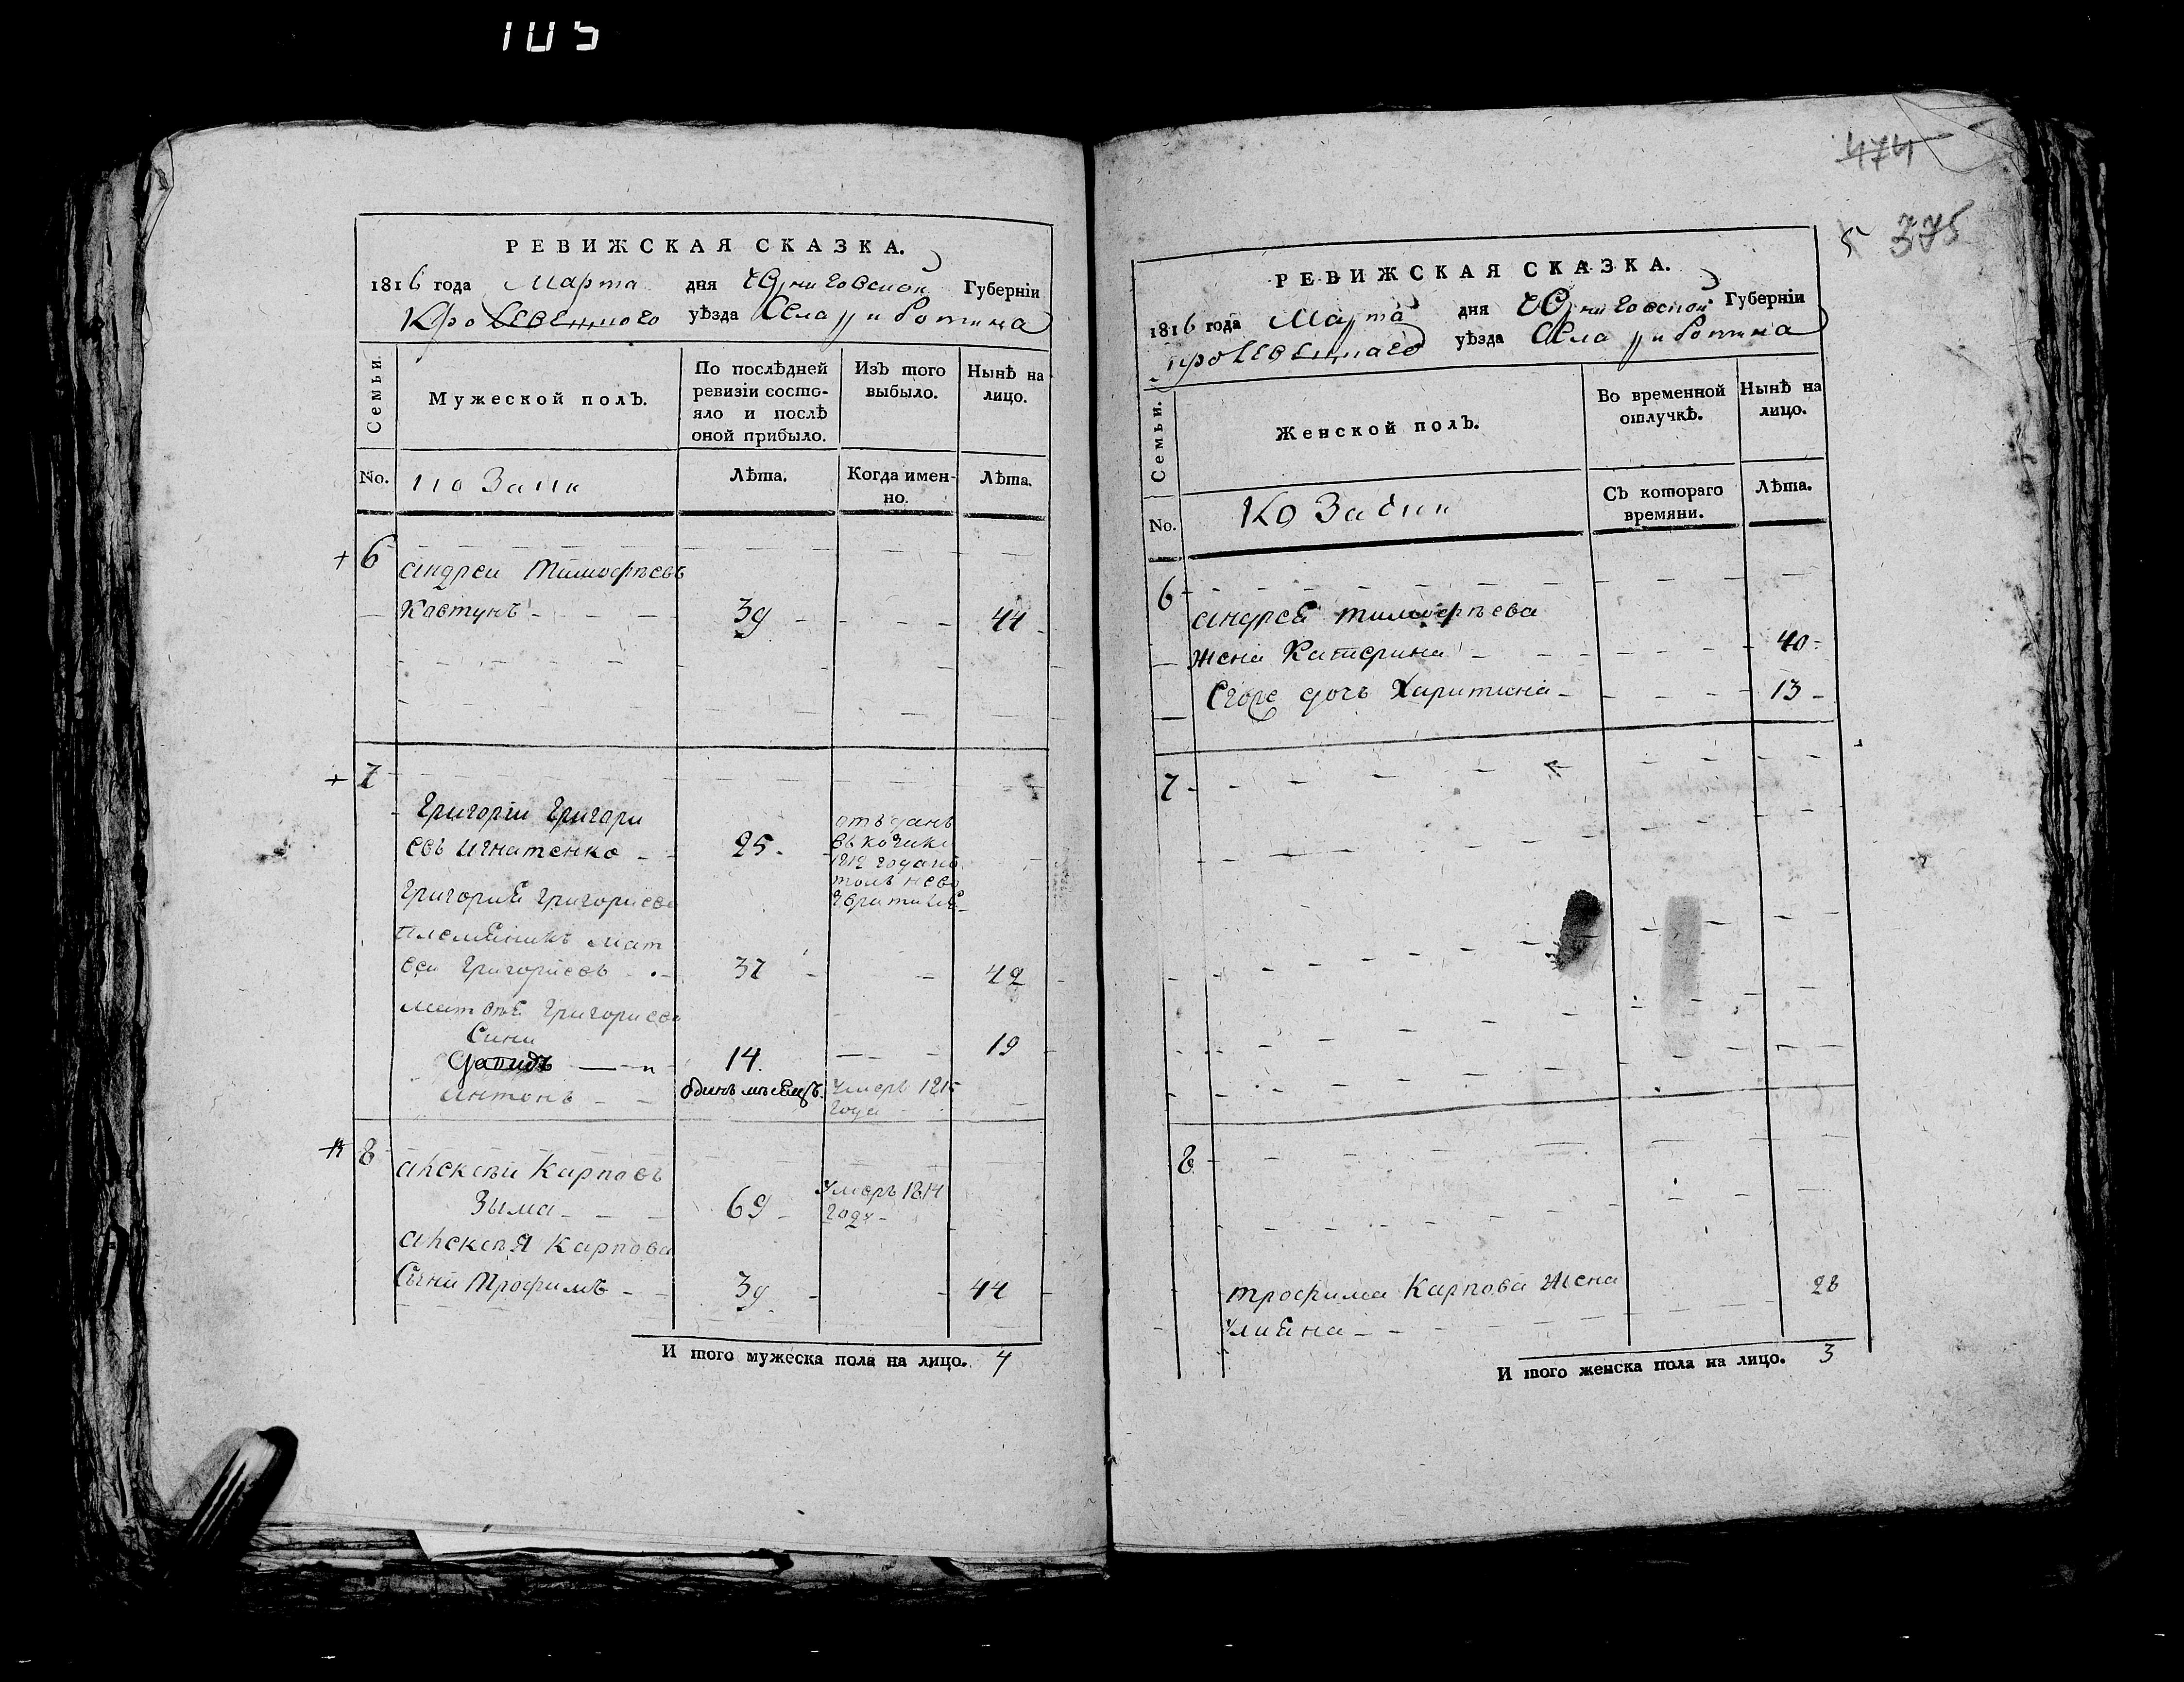 105
РЕВИЖСКАЯ СКАЗКА.
1816 года Марта дня Черниговской Губерніи
Кролевецкого уѣзда Села
Семьи.
Мужеской полъ.
По послѣдней ревизіи состояло и послѣ оной прибыло.
Изъ того выбыло.
Нынѣ на лицо.
No.
Козаки
Лѣта.
Когда именно.
Лѣта.
6
андреи Тимофѣевъ
Кавтунъ 39 44
7
Григорїи Григори
евъ Игнатенко 25 отъданъ
въ козаки
1812 года
Григорїя Григориева
племяникъ мат
веи Григорїевъ 37 42
матвѣя Григориева
Сини
Давидъ 14 19
Антонъ одинъ мѣсяцъ умеръ 1815
года
8
алексѣи Карповъ
Зыма 69 умеръ 1814
году
алексѣя Карпова
Сынъ Трофимъ 39 44
И того мужеска пола на лицо. 4
474
5 375
РЕВИЖСКАЯ СКАЗКА.
1816 года Марта дня Черниговской Губерніи
кролевецкаго уѣзда Села
Семьи.
Женской полъ.
Во временной отлучкѣ.
Нынѣ на лицо.
No.
Козачки
Съ котораго времяни.
Лѣта.
6
андрея тимофѣева
жена Катерина 40
Егоже дочъ Харитина 13
7
8
трофима Карпова Жена 28
Улияна
И того женска пола на лицо. 3